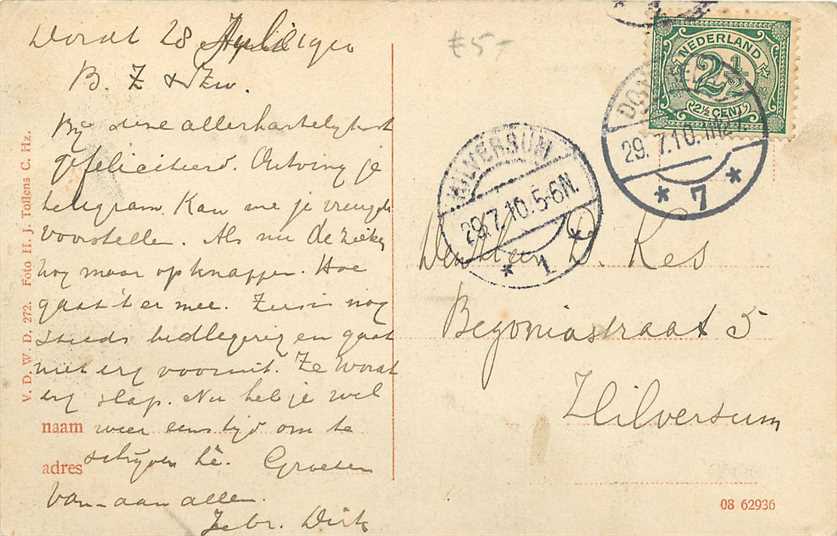 Dordt 28 Juli 1910
B. Z & Zw.
Bij deze allerhartelijkst
gefeliciteerd. Ontving je
telegram. Kan me je vreugde
voorstellen. Als nu de zieken
nog maar opknappen. Hoe
gaat 't er mee. Zus is nog
steeds bedlegerig en gaat
niet erg vooruit. Ze wordt
erg slap. Nu heb je wel
weer eens tijd om te
schrijven hè. Groeten
van - aan allen.
Je br. Dirk
naam
adres
V. D. W. D. 272. Foto H. J. Tollens C. Hz.
£ 5-
NEDERLAND
2½
2½ CENT
29. 7.10.
* 7 *
HILVERSUM
29.7.10.5-6N.
* 1 *
D. Kes
Begoniastraat 5
Hilversum
08 62936